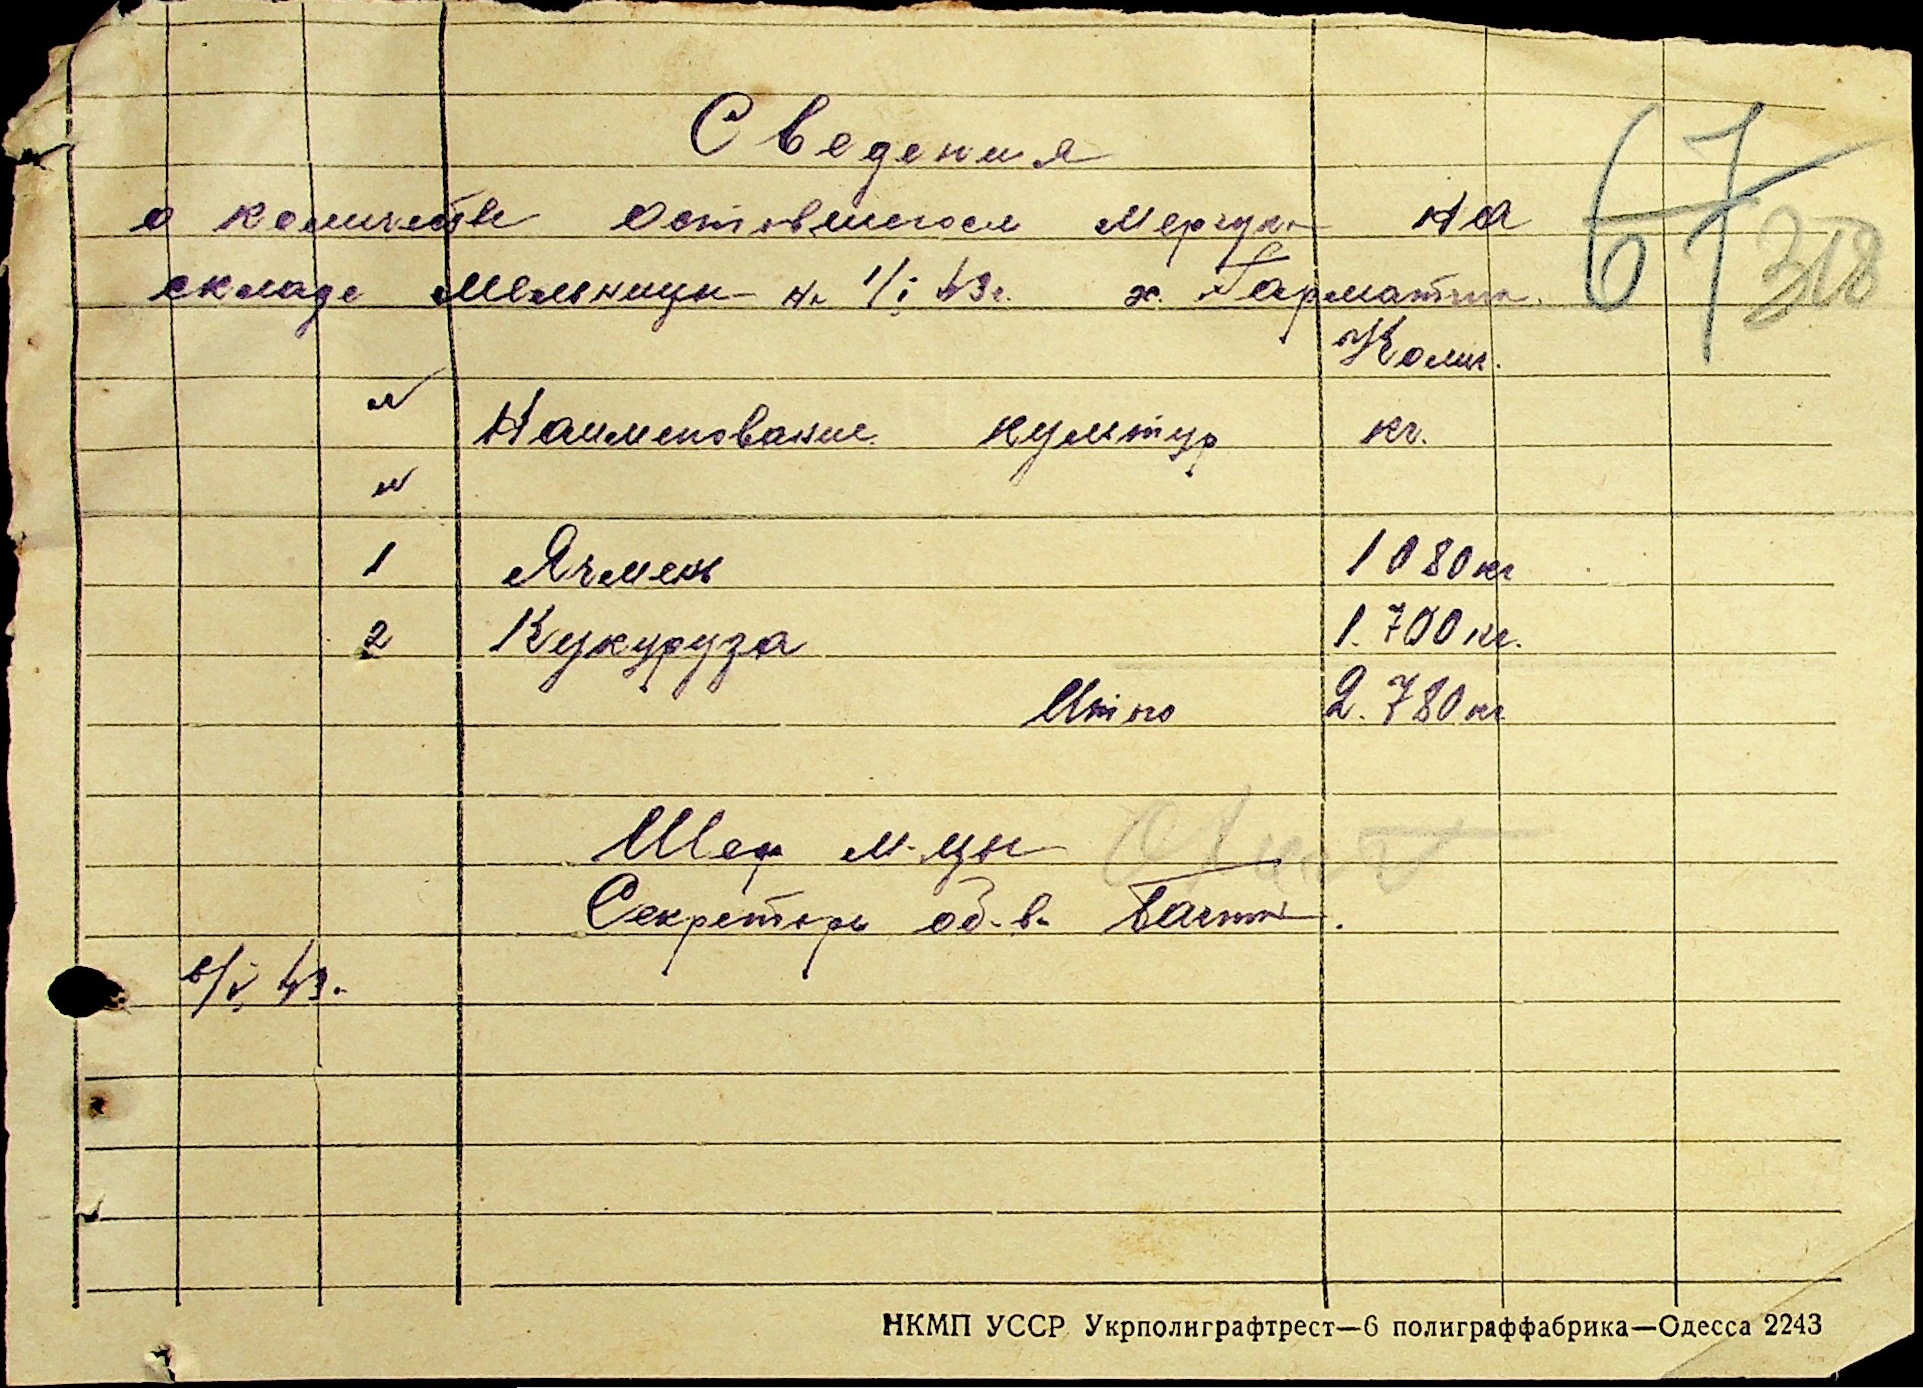 Сведения
о количестве оставшегося мерчука на
складе мельницы на 1/I 43г. х. Гарматки.
67
318
Колич.
№ Наименование культур кг.
№
1 Ячмень 1080 кг
2 Кукуруза 1.700 кг.
Итого 2.780 кг
Шеф м-цы
Секретарь об-ва
6/I 43.
НКМП УССР Укрполиграфтрест—6 полиграффабрика—Одесса 2243